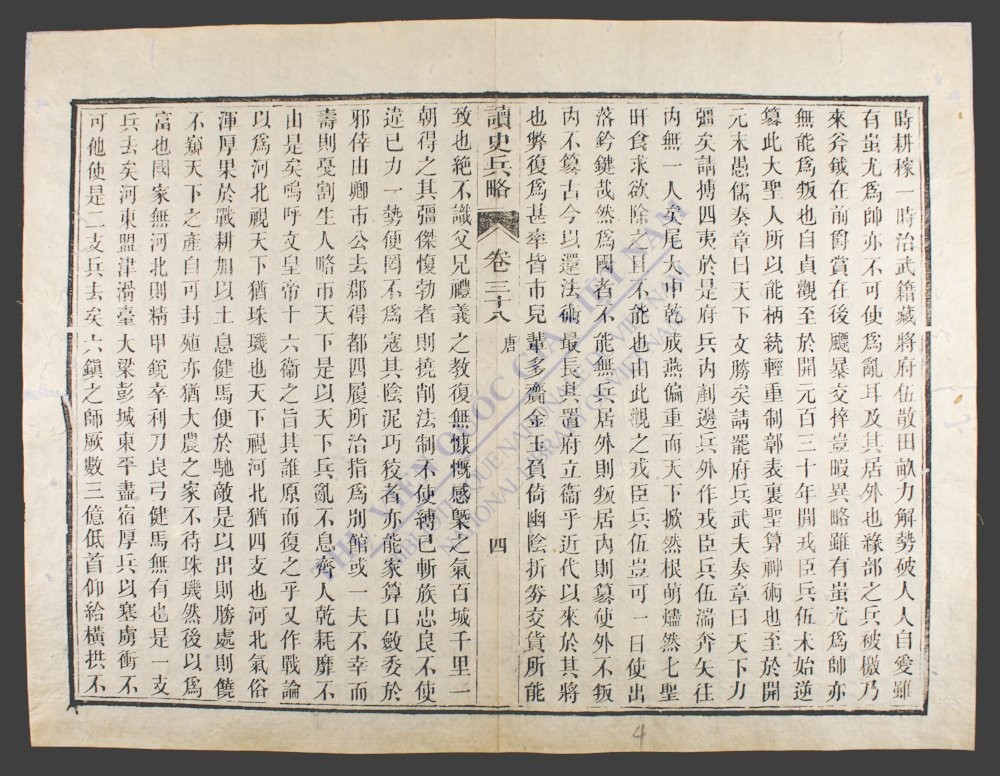 時耕稼一時治武籍藏將府伍散田畝力解勢破人人自愛雖
有蚩尤爲帥亦不可使爲亂耳及其居外也緣部之兵被檄乃
來斧鉞在前爵賞在後飄暴交捽豈暇異略雖有蚩尤爲帥亦
無能爲叛也自貞觀至於開元百三十年閒戎臣兵伍未始逆
篡此大聖人所以能柄統輕重制鄣表裏聖算神術也至於開
元末愚儒奏章曰天下文勝矣請罷府兵武夫奏章曰天下力
彊矣請搏四夷於是府兵內剷邊兵外作戎臣兵伍湍奔矢往
內無一人矣尾大中乾成燕偏重而天下掀然根萌燼然七聖
旰食求欲除之且不能也由此觀之戎臣兵伍豈可一日使出
落鈐鍵哉然爲國者不能無兵居外則叛居內則篡使外不叛
內不篡古今以還法術最長其置府立衞乎近代以來於其將
也弊復爲甚率皆市兒輩多齎金玉負倚幽陰折劵交貨所能
讀史兵略 卷三十八 唐 四
致也絕不識父兄禮義之教復無慷慨感槩之氣百城千里一
朝得之其彊傑愎勃者則撓削法制不使縛己斬族忠良不使
違己力一勢便罔不爲寇其陰泥巧狡者亦能家算口斂委於
邪倖由卿市公去郡得都四履所治指爲別館或一夫不幸而
壽則戞割生人略帀天下是以天下兵亂不息齊人乾耗靡不
由是矣嗚呼文皇帝十六衞之旨其誰原而復之乎又作戰論
以爲河北視天下猶珠璣也天下視河北猶四支也河北氣俗
渾厚果於戰耕加以土息健馬便於馳敵是以出則勝處則饒
不窺天下之產自可封殖亦猶大農之家不待珠璣然後以爲
富也國家無河北則精甲銳卒利刀良弓健馬無有也是一支
兵去矣河東盟津滑臺大梁彭城東平盡宿厚兵以塞虜衝不
可他使是二支兵去矣六鎭之師厥數三億低首仰給橫拱不
THƯ VIỆN QUỐC GIA VIỆT NAM
NATIONAL LIBRARY OF VIETNAM
4